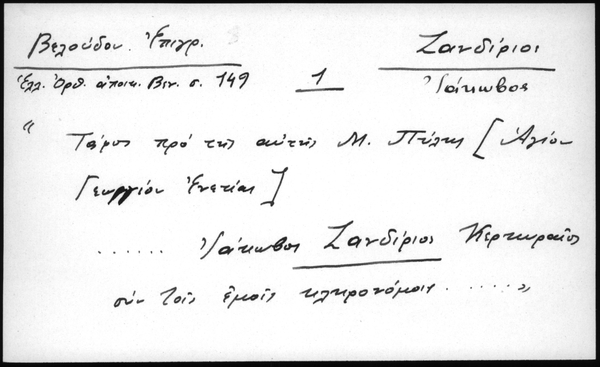 Βελούδου Ἐπιγρ. Ζανδίριοι
Ἑλλ. Ὀρθ. ἀποικ. Βεν. σ. 149 1 Ἰάκωβος
“ Τάφος πρό τῆς αὐτῆς Μ. Πύλης [Ἁγίου
Γεωργίου Ἑνετίας]
...... Ἰάκωβος Ζανδίριος Κερκυραῖος
σύν τοῖς ἐμοῖς κληρονόμοις ...... „